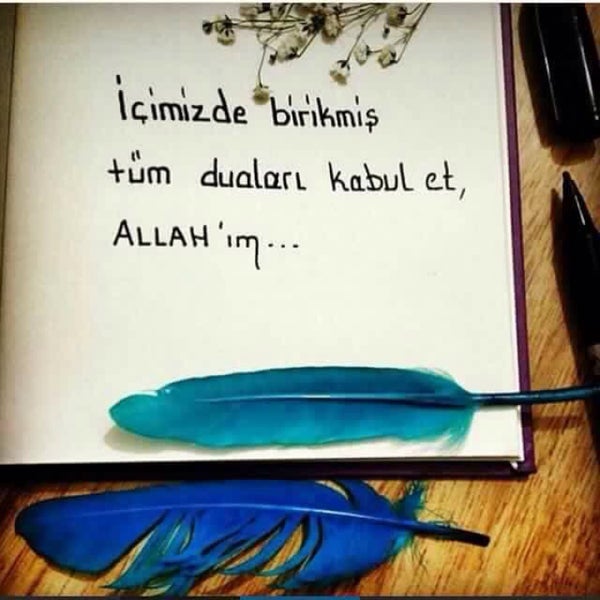 İçimizde birikmiş
tüm duaları kabul et,
ALLAH'ım...